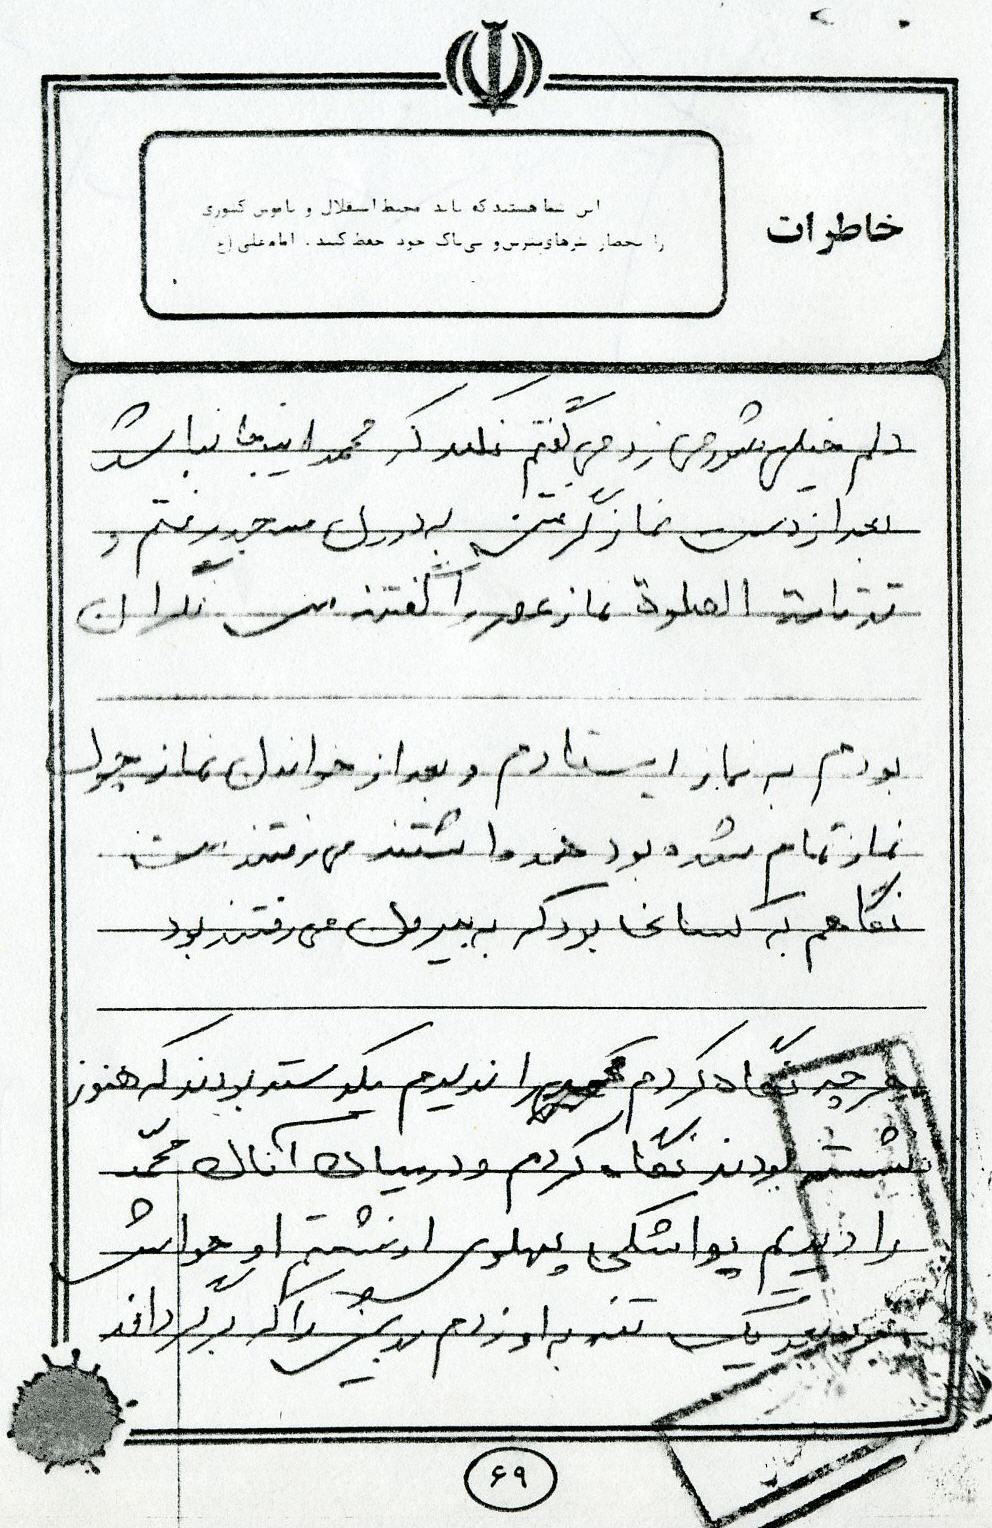 خاطرات
این شما هستید که باید محیط استقلال و ناموس کشوری
را بحصار نیزهای تیز و بی‌باک خود حفظ کنید. امام علی (ع)
دلم خیلی شور می زد می گفتم نکند که محمد اینجا نباشد
بعد از دست نماز گرفتن به درون مسجد رفتم و
قد قامت الصلوة نماز عصر را گفتند من نگران
بودم به نماز ایستادم و بعد از خواندن نماز چون
نماز تمام شده بود همه داشتند می رفتند من
نگاهم به کسانی بود که به بیرون می رفتند بود
هرچه نگاه کردم محمد را ندیدم یکدسته بودند که هنوز
نشسته بودند نگاه کردم و در میان آنان محمّد
را دیدم یواشکی پهلوی او نشستم او حواسش
نبود بعد یک تنه به او زدم رویش را که برگرداند
۶۹